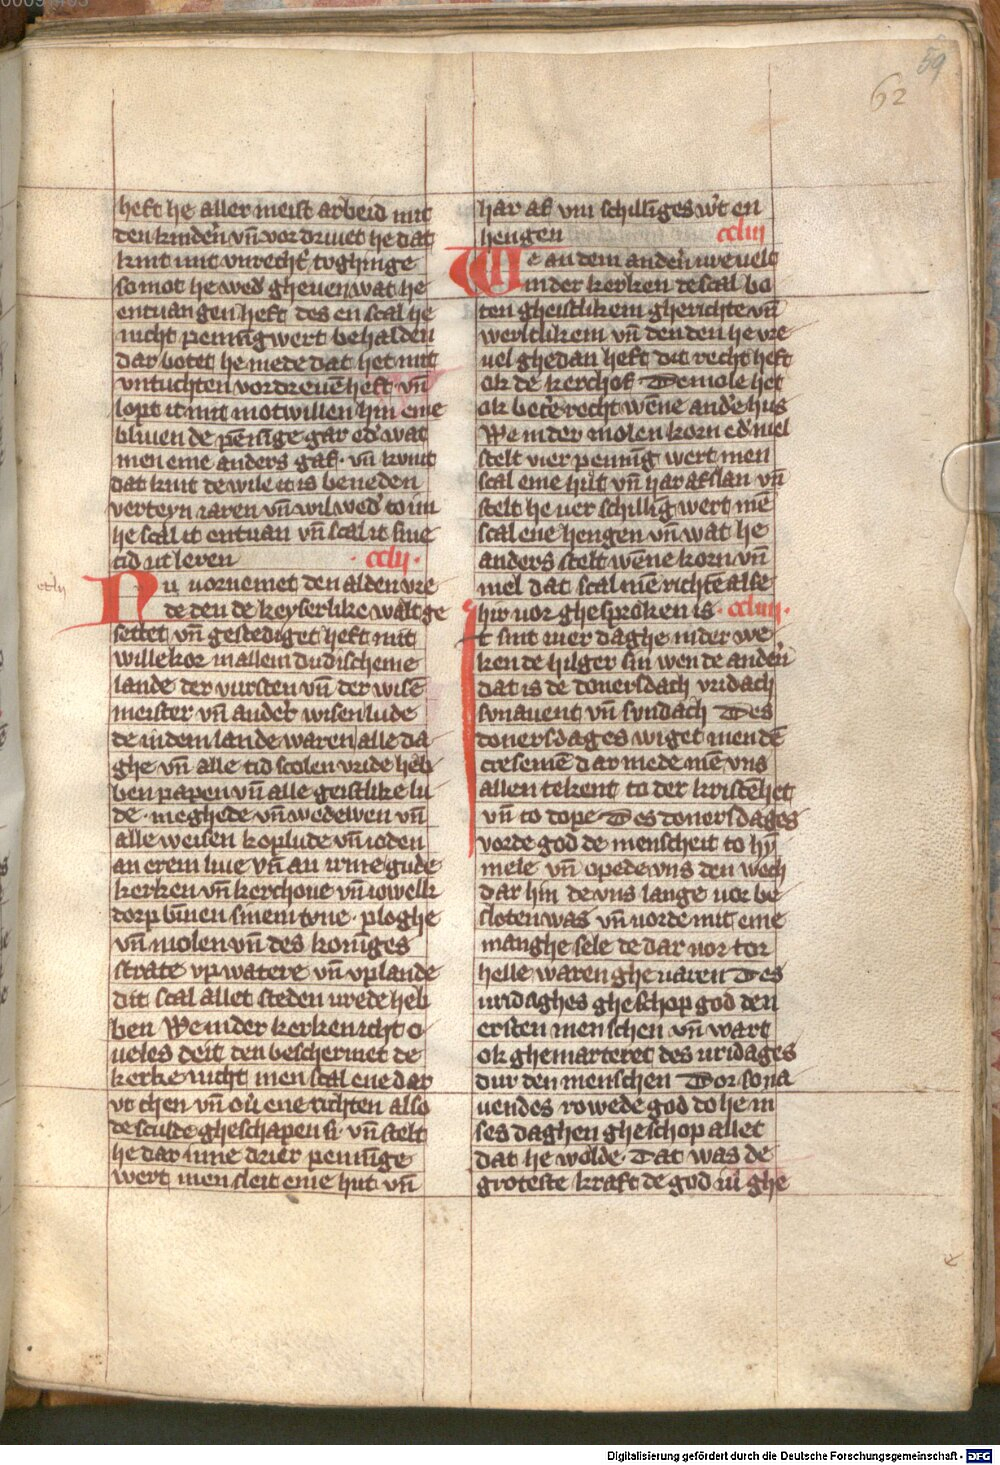 59
62
heft he aller meist arbeid mit
den kindern vn̄ vordriuet he dat
kint mit vnrecht to ghinge
so mot he wed' gheuen wat he
entuangen heft des en scal he
nicht penni̅g wert behalden
dar botet he mede dat het mit
vntuchten vordreue̅ heft · vn̄
lopt it mit motwillen hin eme
bliuen de pe̅ni̅ge gar ed' wat
men eme anders gaf · vn̄ kumt
dat kint de wile it is beneden
verteyn iaren vn̄ wil wed' to im
he scal it entuan vn̄ scal it sine
tid ut leren · cclii ·
cclii
Nu vornemet den alden vre
de den de keyserlike walt ge
settet vn̄ gestediget heft mit
willekor in allem dudischeme
lande der vursten vn̄ der wise̅
meister vn̄ ander wisen lude
de in dem lande waren alle da
ghe vn̄ alle tid scolen vride heb
ben papen vn̄ alle geistlike lu
de · meghede vn̄ wedewen vn̄
alle weisen koplude vn̄ ioden
an erem liue vn̄ an irme gude
kerken vn̄ kerchoue vn̄ iowelk
dorp binnen sinem tvne · ploghe
vn̄ molen vn̄ des koni̅ges
strate vp watere vn̄ vp lande
dit scal allet steden vrede heb
ben We in der kerken icht o
ueles deit den beschermet de
kerke nicht men scal ene dar
vt then vn̄ ou' ene richten also
de sculde gheschapen si · vn̄ stelt
he dar inne drier penni̅ge
wert men sleit eme hut vn̄
har af vm schilli̅ges w't en
hengen ccliii
We an dem anderen vreuelt
in der kerken de scal bo
ten gheistlikem gherichte vn̄
werltlikem vn̄ den den he vre
uel ghedan heft dit recht heft
ok de kerchof De mole het
ok bet'e recht we̅ne and'e hus
We in der molen korn ed' mel
stelt vier penni̅g wert men
scal eme hut vn̄ har af slan vn̄
stelt he uer schilli̅g wert me̅
scal ene hengen vn̄ wat he
anders stelt we̅ne korn vn̄
mel dat scal me̅ richte̅ alse
hir vor ghesproken is · ccliiii ·
It sint vier daghe in der we
ken de hilger sin wen de andern
dat is de donersdach vridach
sonauent vn̄ sundach Des
donersdages wiget men de̅
cresem̅e dar mede me̅ vns
allen tekent to der kriste̅het
vn̄ to dope · Des donersdages
vorde god de menscheit to hy̅
mele vn̄ opede vns den wech
dar hin de vns lange vor be
sloten was vn̄ vorde mit eme
manghe sele de dar vor tor
helle waren gheuaren Des
vridaghes gheschop god den
ersten menschen vn̄ wart
ok ghemarteret des vridages
dur den menschen Dor sona
uendes rowede god do he in
ses daghen gheschop allet
dat he wolde · Dat was de
groteste kraft de god iu ghe
Digitalisierung gefördert durch die Deutsche Forschungsgemeinschaft - DFG